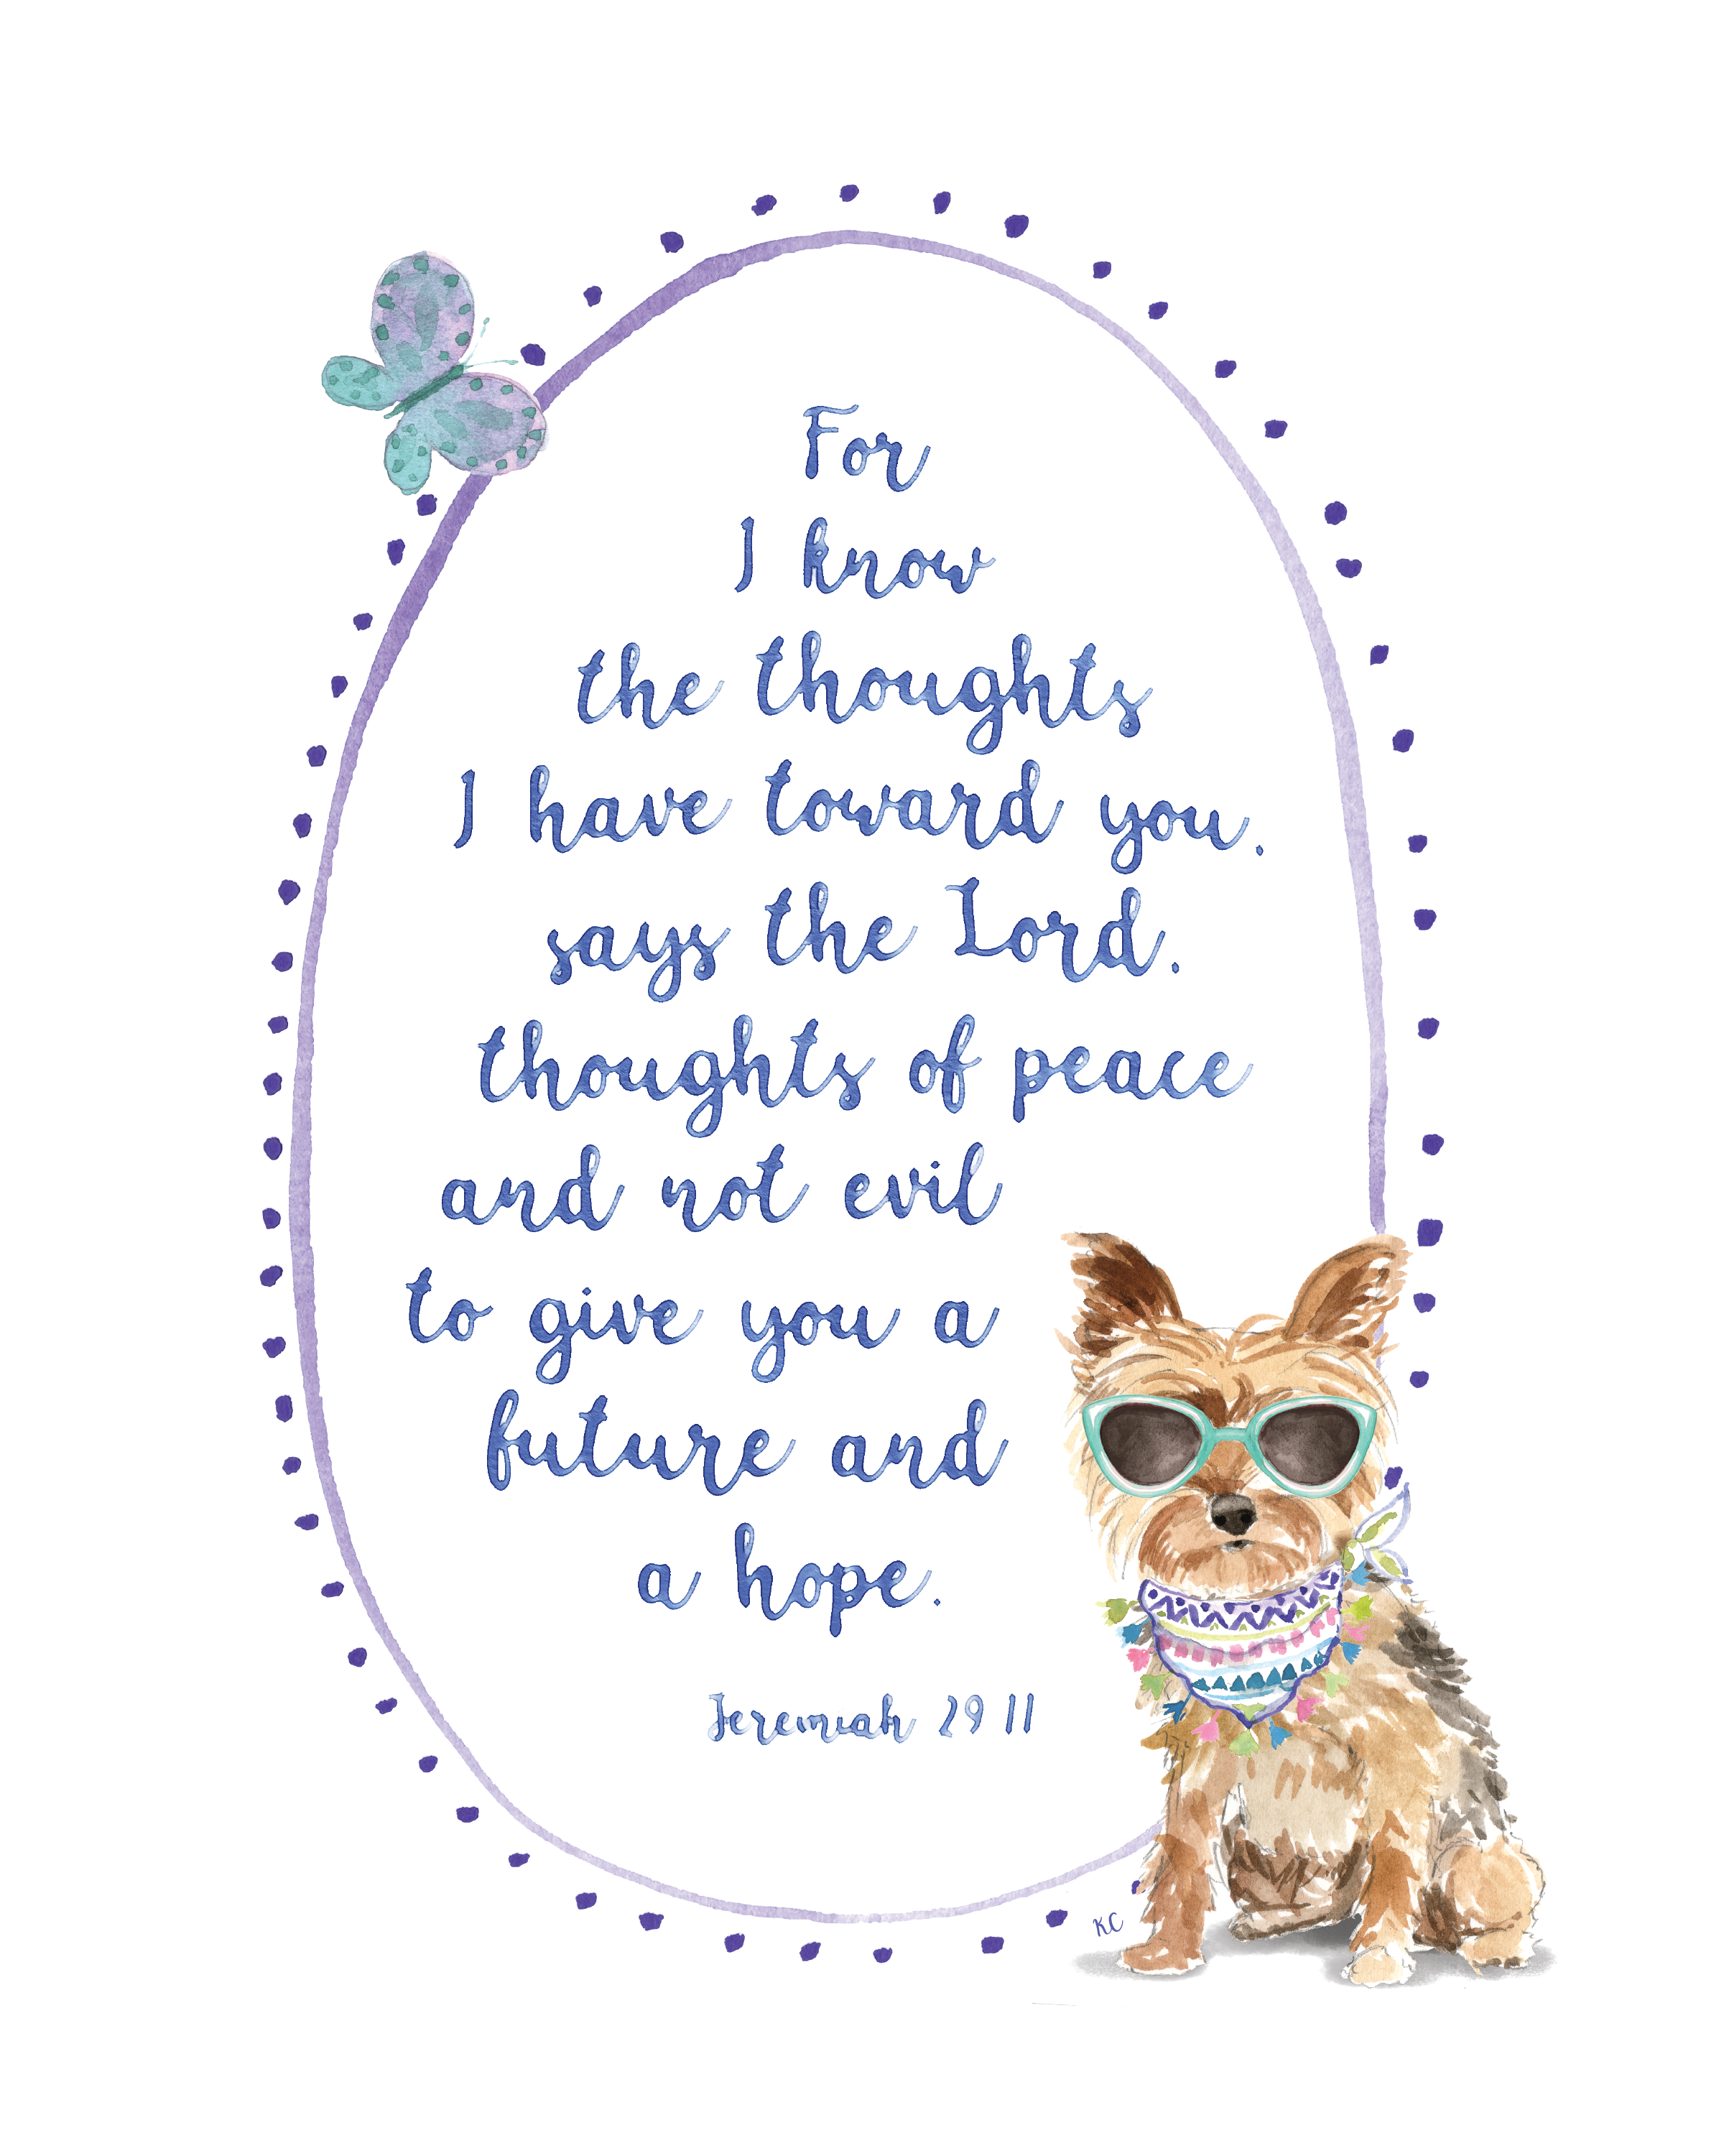 For
I know
the thoughts
I have toward you.
says the Lord.
thoughts of peace
and not evil
to give you a
future and
a hope.
Jeremiah 29 11
KC